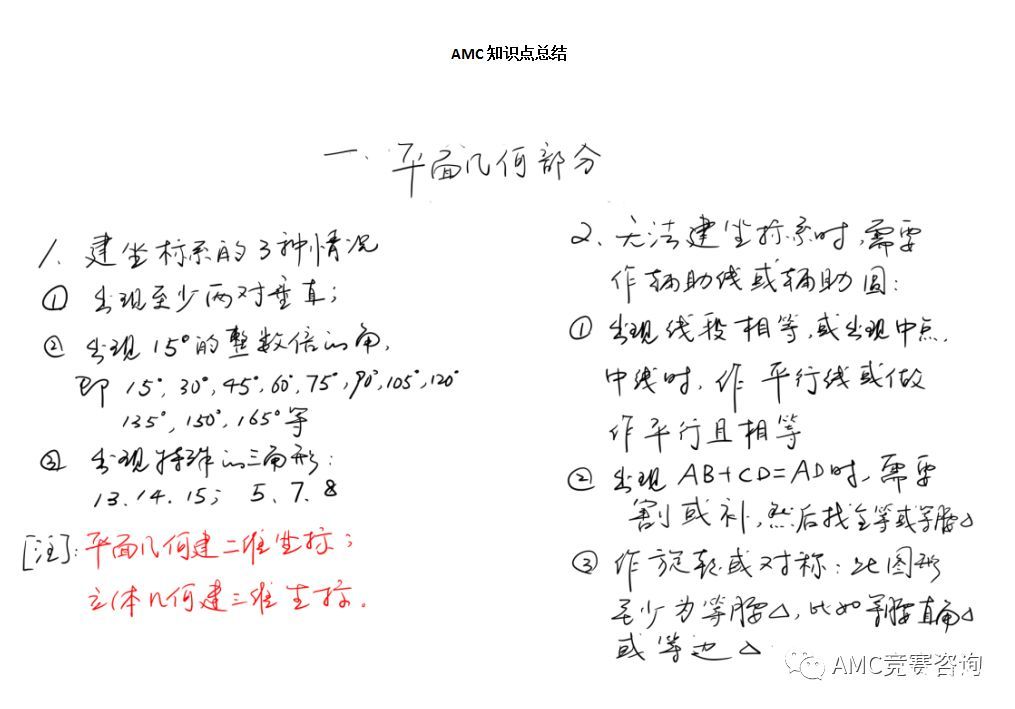 AMC知识点总结
一、平面几何部分
1、建坐标系的3种情况
① 出现至少两对垂直;
② 出现15°的整数倍的角,
即 15°,30°,45°,60°,75°,90°,105°,120°
135°,150°,165°等
③ 出现特殊的三角形:
13.14.15; 5、7、8
[注]:平面几何建二维坐标;
立体几何建三维坐标.
2、无法建坐标系时,需要
作辅助线或辅助圆:
① 出现线段相等,或出现中点,
中线时,作平行线或做
作平行且相等
② 出现AB+CD=AD时,需要
割或补,然后找全等或等腰△
③ 作旋转或对称:此图形
至少为等腰△,比如等腰直角△
或等边△
AMC竞赛咨询